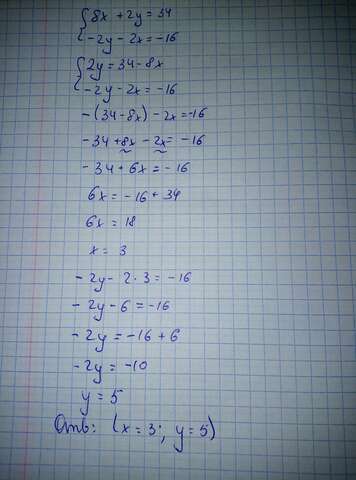 8x + 2y = 34
-2y - 2x = -16
2y = 34 - 8x
-2y - 2x = -16
-(34-8x) - 2x = -16
-34 + 8x - 2x = -16
-34 + 6x = -16
6x = -16 + 34
6x = 18
x = 3
-2y - 2·3 = -16
-2y - 6 = -16
-2y = -16 + 6
-2y = -10
y = 5
Отв: (x = 3; y = 5)